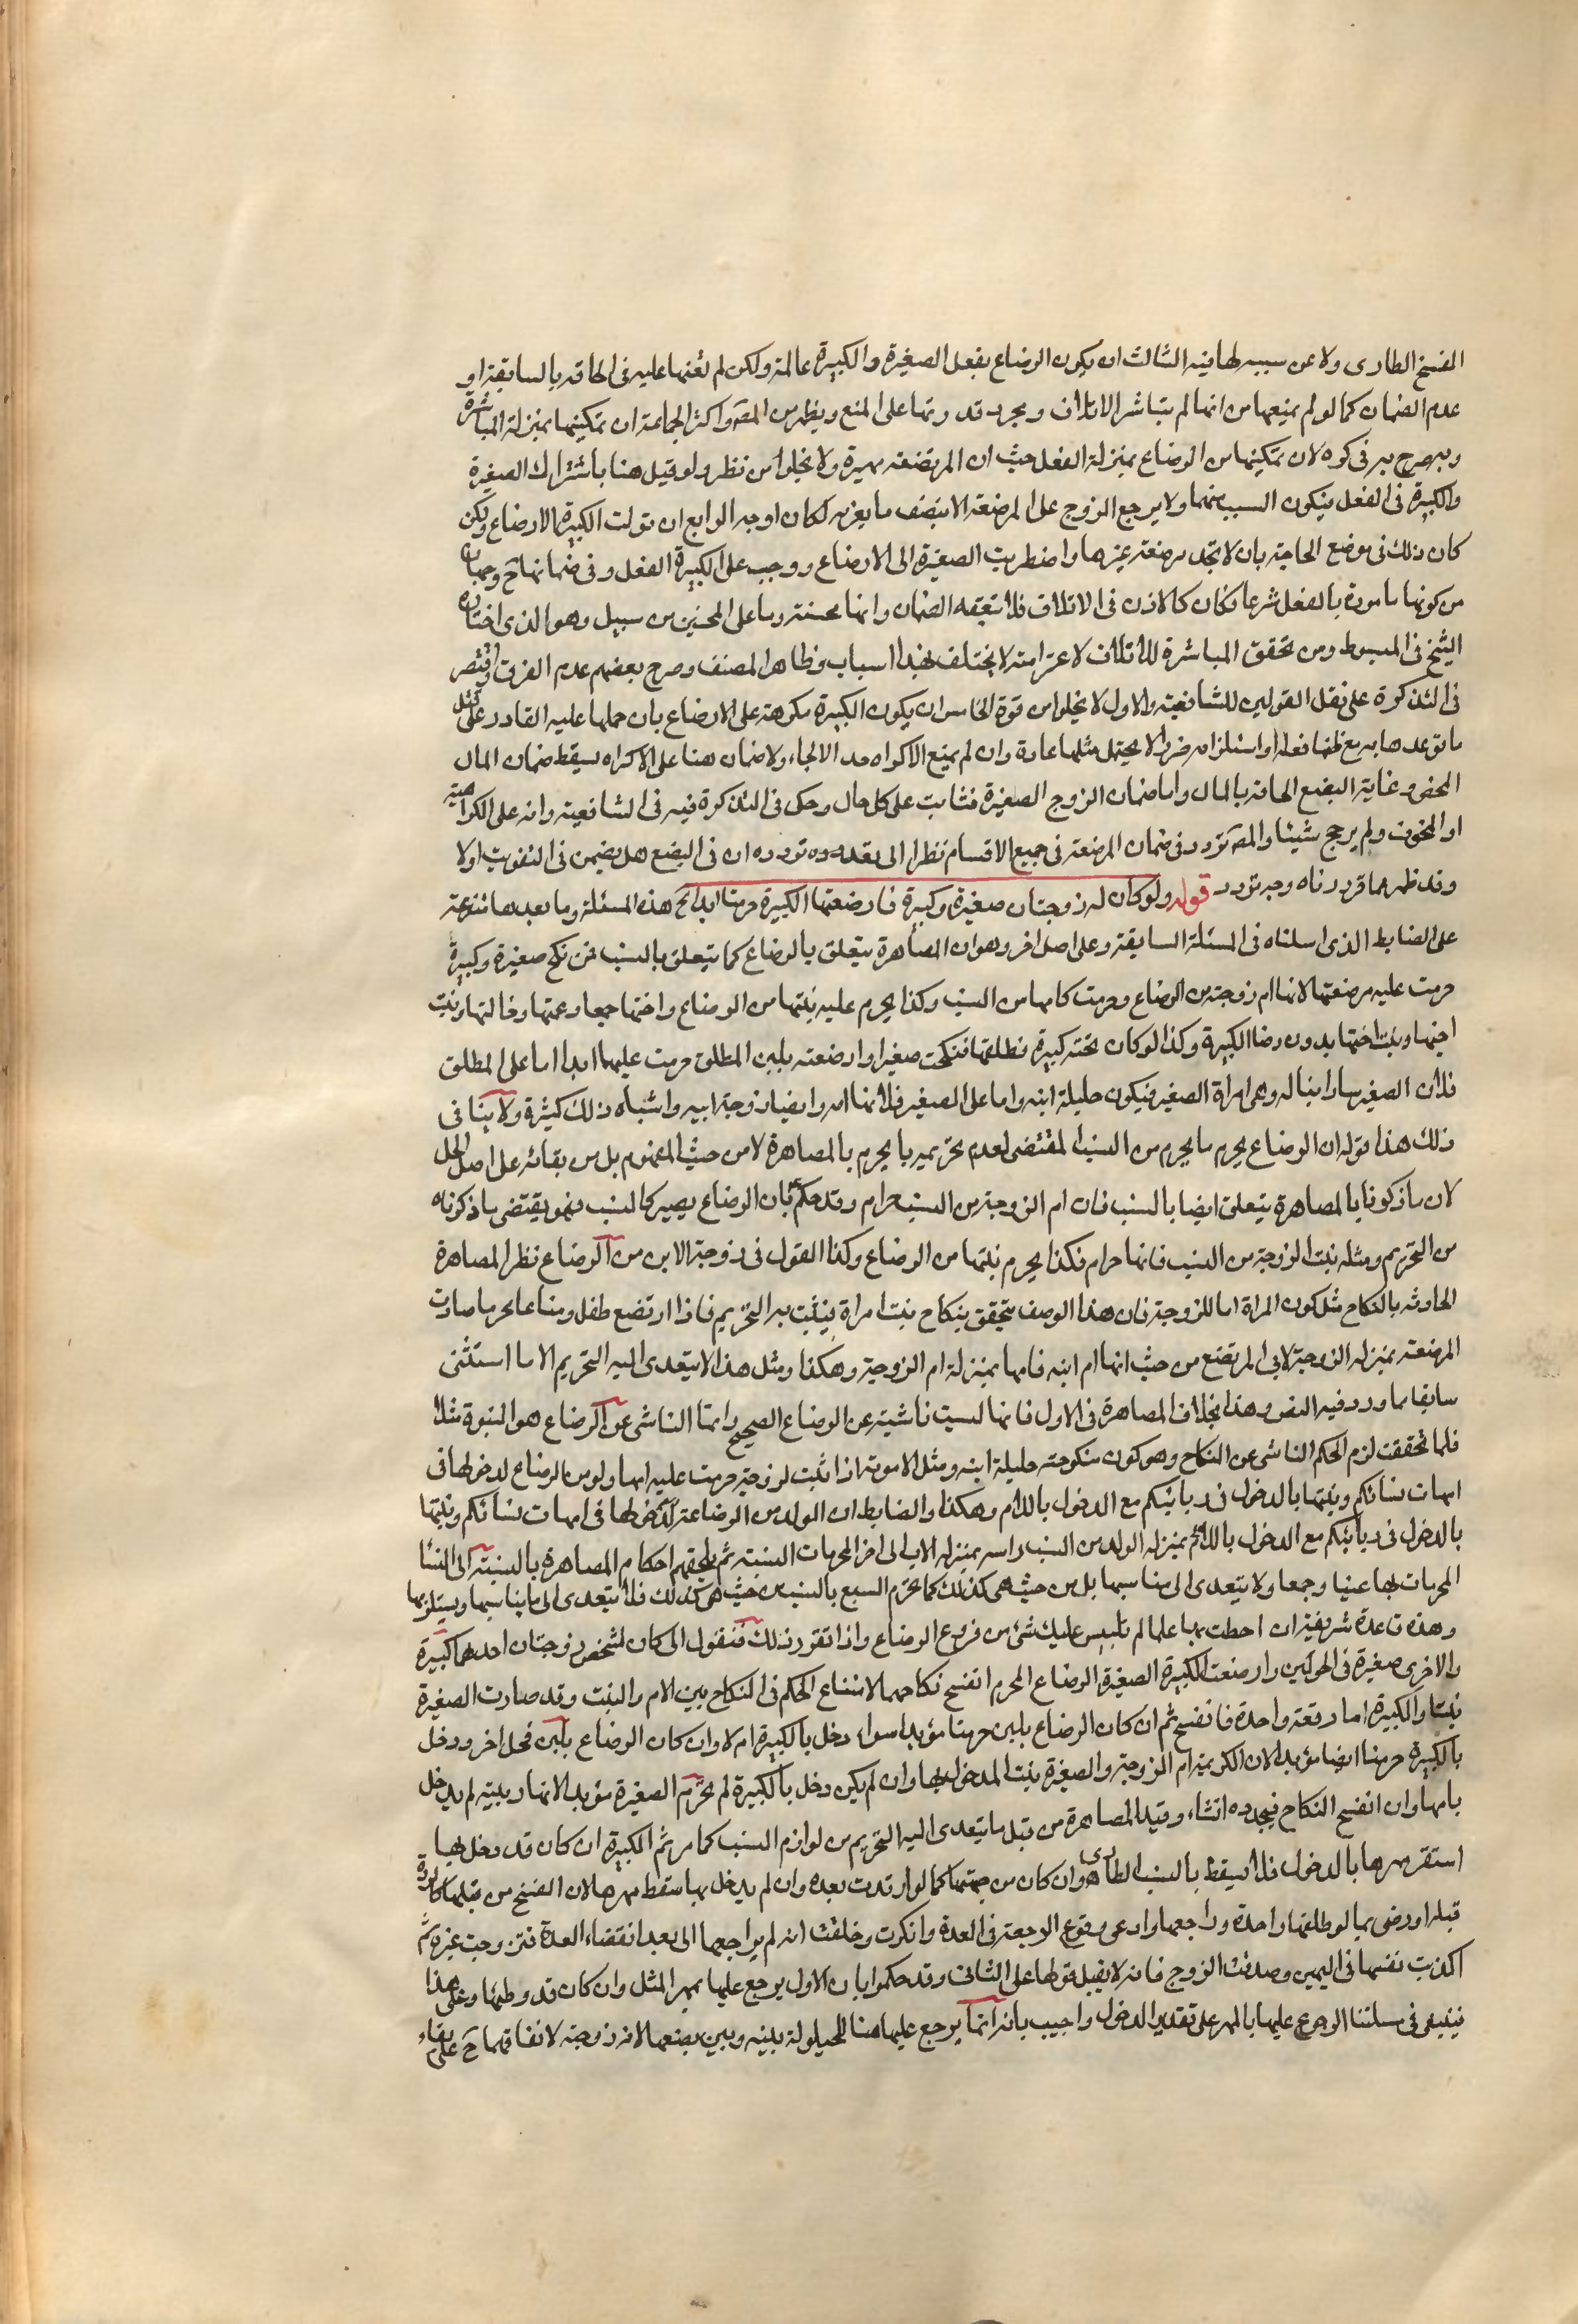 الفسخ الطارى ولا عن سببه لها فيه الثالث ان يكون الرضاع بفعل الصغيرة والكبيرة عالمة ولكن لم تعنها عليه فى الحاقه بالسابقة او
عدم الضمان كما لو لم يمنعها من انها لم يتباشر الاتلاف ومجرد قدرتها على المنع ويظهر من المص واكثر الجماعة ان تمكينها بمنزلة المباشرة
وبه صرح يه فى كره لان تمكينها من الرضاع بمنزلة الفعل حيث ان المرتضعة مميزة ولا يخلوا من نظر ولو قيل هنا باشتراك الصغيرة
والكبيرة فى الفعل فيكون السبب منهما ولا يرجع الزوج على المرضعة الا بنصف ما يغرمه لكان اوجه الرابع ان تولت الكبيرة الارضاع ولكن
كان ذلك فى موضع الحاجة بان لا تجد مرضعة غيرها واضطريت الصغيرة الى الارضاع ووجب على الكبيرة الفعل وفى ضمانها ح وجهان
من كونها مامورة بالفعل شرعا فكان كالاذن فى الاتلاف فلا يتعقبه الضمان وانها محسنة وما على المحسنين من سبيل وهو الذى اختاره
الشيخ فى المبسوط ومن تحقق المباشرة للاتلاف لا غرامته لا يختلف بهذا اسباب وظاهر المصنف وصرح بعضهم عدم الفرق واقتصر
فى التذكرة على نقل القولين للشافعية والاول لا يخلوا من قوة الخامس ان يكون الكبيرة مكرهة على الارضاع بان حملها عليه القادر على فعل
ما توعدها به مع ظنها فعله او استلزامه ضررا لا يحتمل مثلها عادة وان لم يمنع الاكراه حد الالجاء ولا ضمان هنا على الاكراه يسقط ضمان المال
المحض وغاية البضع الحاقه بالمال واما ضمان الزوج الصغيرة فثابت على كل حال وحكى فى التذكرة فيه فى الشافعية وانه على الكراهية
او المخوف ولم يرجح شيئا والمص تردد فى ضمان المرضعة فى جميع الاقسام نظرا الى تردده ان فى البضع هل يضمن فى التفويت اولا
وقد ظهر مما قررناه وجه تردد قوله ولو كان له زوجتان صغيرة وكبيرة فارضعتها الكبيرة حرمتا ابدا الخ هذه المسئلة وما بعدها متفرعة
على الضابط الذى اسلناه فى المسئلة السابقة وعلى اصل اخر وهو ان المصاهرة يتعلق بالرضاع كما يتعلق بالنسب فمن نكح صغيرة وكبيرة
حرمت عليه مرضعتها لانها ام زوجته من الرضاع وحرمت كامها من النسب وكذا يحرم عليه بنتها من الرضاع واختها جمعا وعمتها وخالتها وبنت
اخيها وبنت اختها بدون رضا الكبيرة وكذا لو كان تحته كبيرة فطلقها فنكحت صغيرا وارضعته بلبن المطلق حرمت عليهما ابدا اما على المطلق
فلان الصغير صار ابنا له وهى امراة الصغير فيكون حليلة ابنه واما على الصغير فلانها امه وايضا زوجة ابيه واشباه ذلك كثيرة ولا ينافى
ذلك هذا قوله ان الرضاع يحرم ما يحرم من النسب المقتضى لعدم تحريمه ما يحرم بالمصاهرة لا من حيث المفهوم بل من بقائه على اصل الحل
لان ما ذكرنا بالمصاهرة يتعلق ايضا بالنسب فان ام الزوجة من النسب حرام وقد حكم بان الرضاع يصير كالنسب فهو يقتضى ما ذكرناه
من التحريم ومثله بنت الزوجة من النسب فانها حرام فكذا يحرم بنتها من الرضاع وكذا القول فى زوجة الابن من الرضاع نظرا لمصاهرة
الحادثه بالنكاح مثل كون المراة اما للزوجة فان هذا الوصف يتحقق بنكاح بنت امراة فيثبت به التحريم فاذا ارتضع طفل رضاعا محرما صارت
المرضعة بمنزلة الزوجة لابى المرتضع من حيث انها ام ابنه فامها بمنزلة ام الزوجة وهكذا ومثل هذا لا يتعدى اليه التحريم الا ما استثنى
سابقا مما ورد فيه النص وهذا بخلاف المصاهرة فى الاول فانها ليست ناشية عن الرضاع الصحيح وانما الناشى عن الرضاع هو البنوة مثلا
فلما تحققت لزم الحكم الناشى عن النكاح وهو كون منكوحته حليلة ابنه ومثل الامومة اذا ثبت لزوجة حرمت عليه امها ولو من الرضاع لدخولها فى
امهات نسائكم وبنتها بالدخول فى ربائبكم مع الدخول بالام وهكذا والضابط ان الولد من الرضاعة لدخولها فى امهات نسائكم وبنتها
بالدخول فى ربائبكم مع الدخول بالام بمنزلة الولد من النسب واسه بمنزلة الاب الى اخر المحرمات النسبية ثم يلحقهم احكام المصاهرة بالنسبة الى النسا
المحرمات بها عينا وجمعا ولا يتعدى الى مناسبها بل من حيث هى كذلك كما تحرم السبع بالنسب من حيث هى كذلك فلا يتعدى الى ما يناسبها ويستلزمها
وهذه قاعدة شريفة ان احطت بها علما لم يلتبس عليك شئ من فروع الرضاع واذا تقرر ذلك فنقول الى كان لشخص زوجتان احدهما كبيرة
والاخرى صغيرة فى الحولين وارضعت الكبيرة الصغيرة الرضاع المحرم انفسخ نكاحهما لامتناع الحكم فى النكاح بين الام والبنت وقد صارت الصغيرة
بنتا والكبيرة اما دفعة واحدة فانفسخ ثم ان كان الرضاع بلبن حرمتا مؤبدا سواء دخل بالكبيرة ام لا وان كان الرضاع بلبن فحل اخر ودخل
بالكبيرة حرمتا ايضا مؤبدا لان الكريمة ام الزوجة والصغيرة بنت المدخول بها وان لم يكن دخل بالكبيرة لم تحرم الصغيرة مؤبدا لانها ربيبة لم يدخل
بامها وان انفسخ النكاح فيجدده انشاء وقيد المصاهرة من قبل ما يتعدى اليه التحريم من لوازم النسب كما مر ثم الكبيرة ان كان قد دخل بها
استقر مهرها بالدخول فلا يسقط بالنسب الطارى وان كان من جهتها كما لو ارتدت بعده وان لم يدخل بها سقط مهرها لان الفسخ من قبلها كالردة
قبله اورض بما لو طلقها واحدة وراجعها وادعى وقوع الرجعة فى العدة وانكرت وحلفت انه لم يراجعها الى بعد انقضاء العدة فتزوجت غيره ثم
اكذبت نفسها فى اليمين وصدقت الزوج فانه لا يقبل قولها على الثانى وقد حكموا بان الاول يرجع عليها بمهر المثل وان كان قد وطئها وعلى هذا
فينبغى فى مسئلتنا الرجوع عليها بالمهر على تقدير الدخول واجيب بانه انما يرجع عليها هنا للحيلولة بينه وبين بضعها لانه زوجته لاتفاقهما ح على بقاء